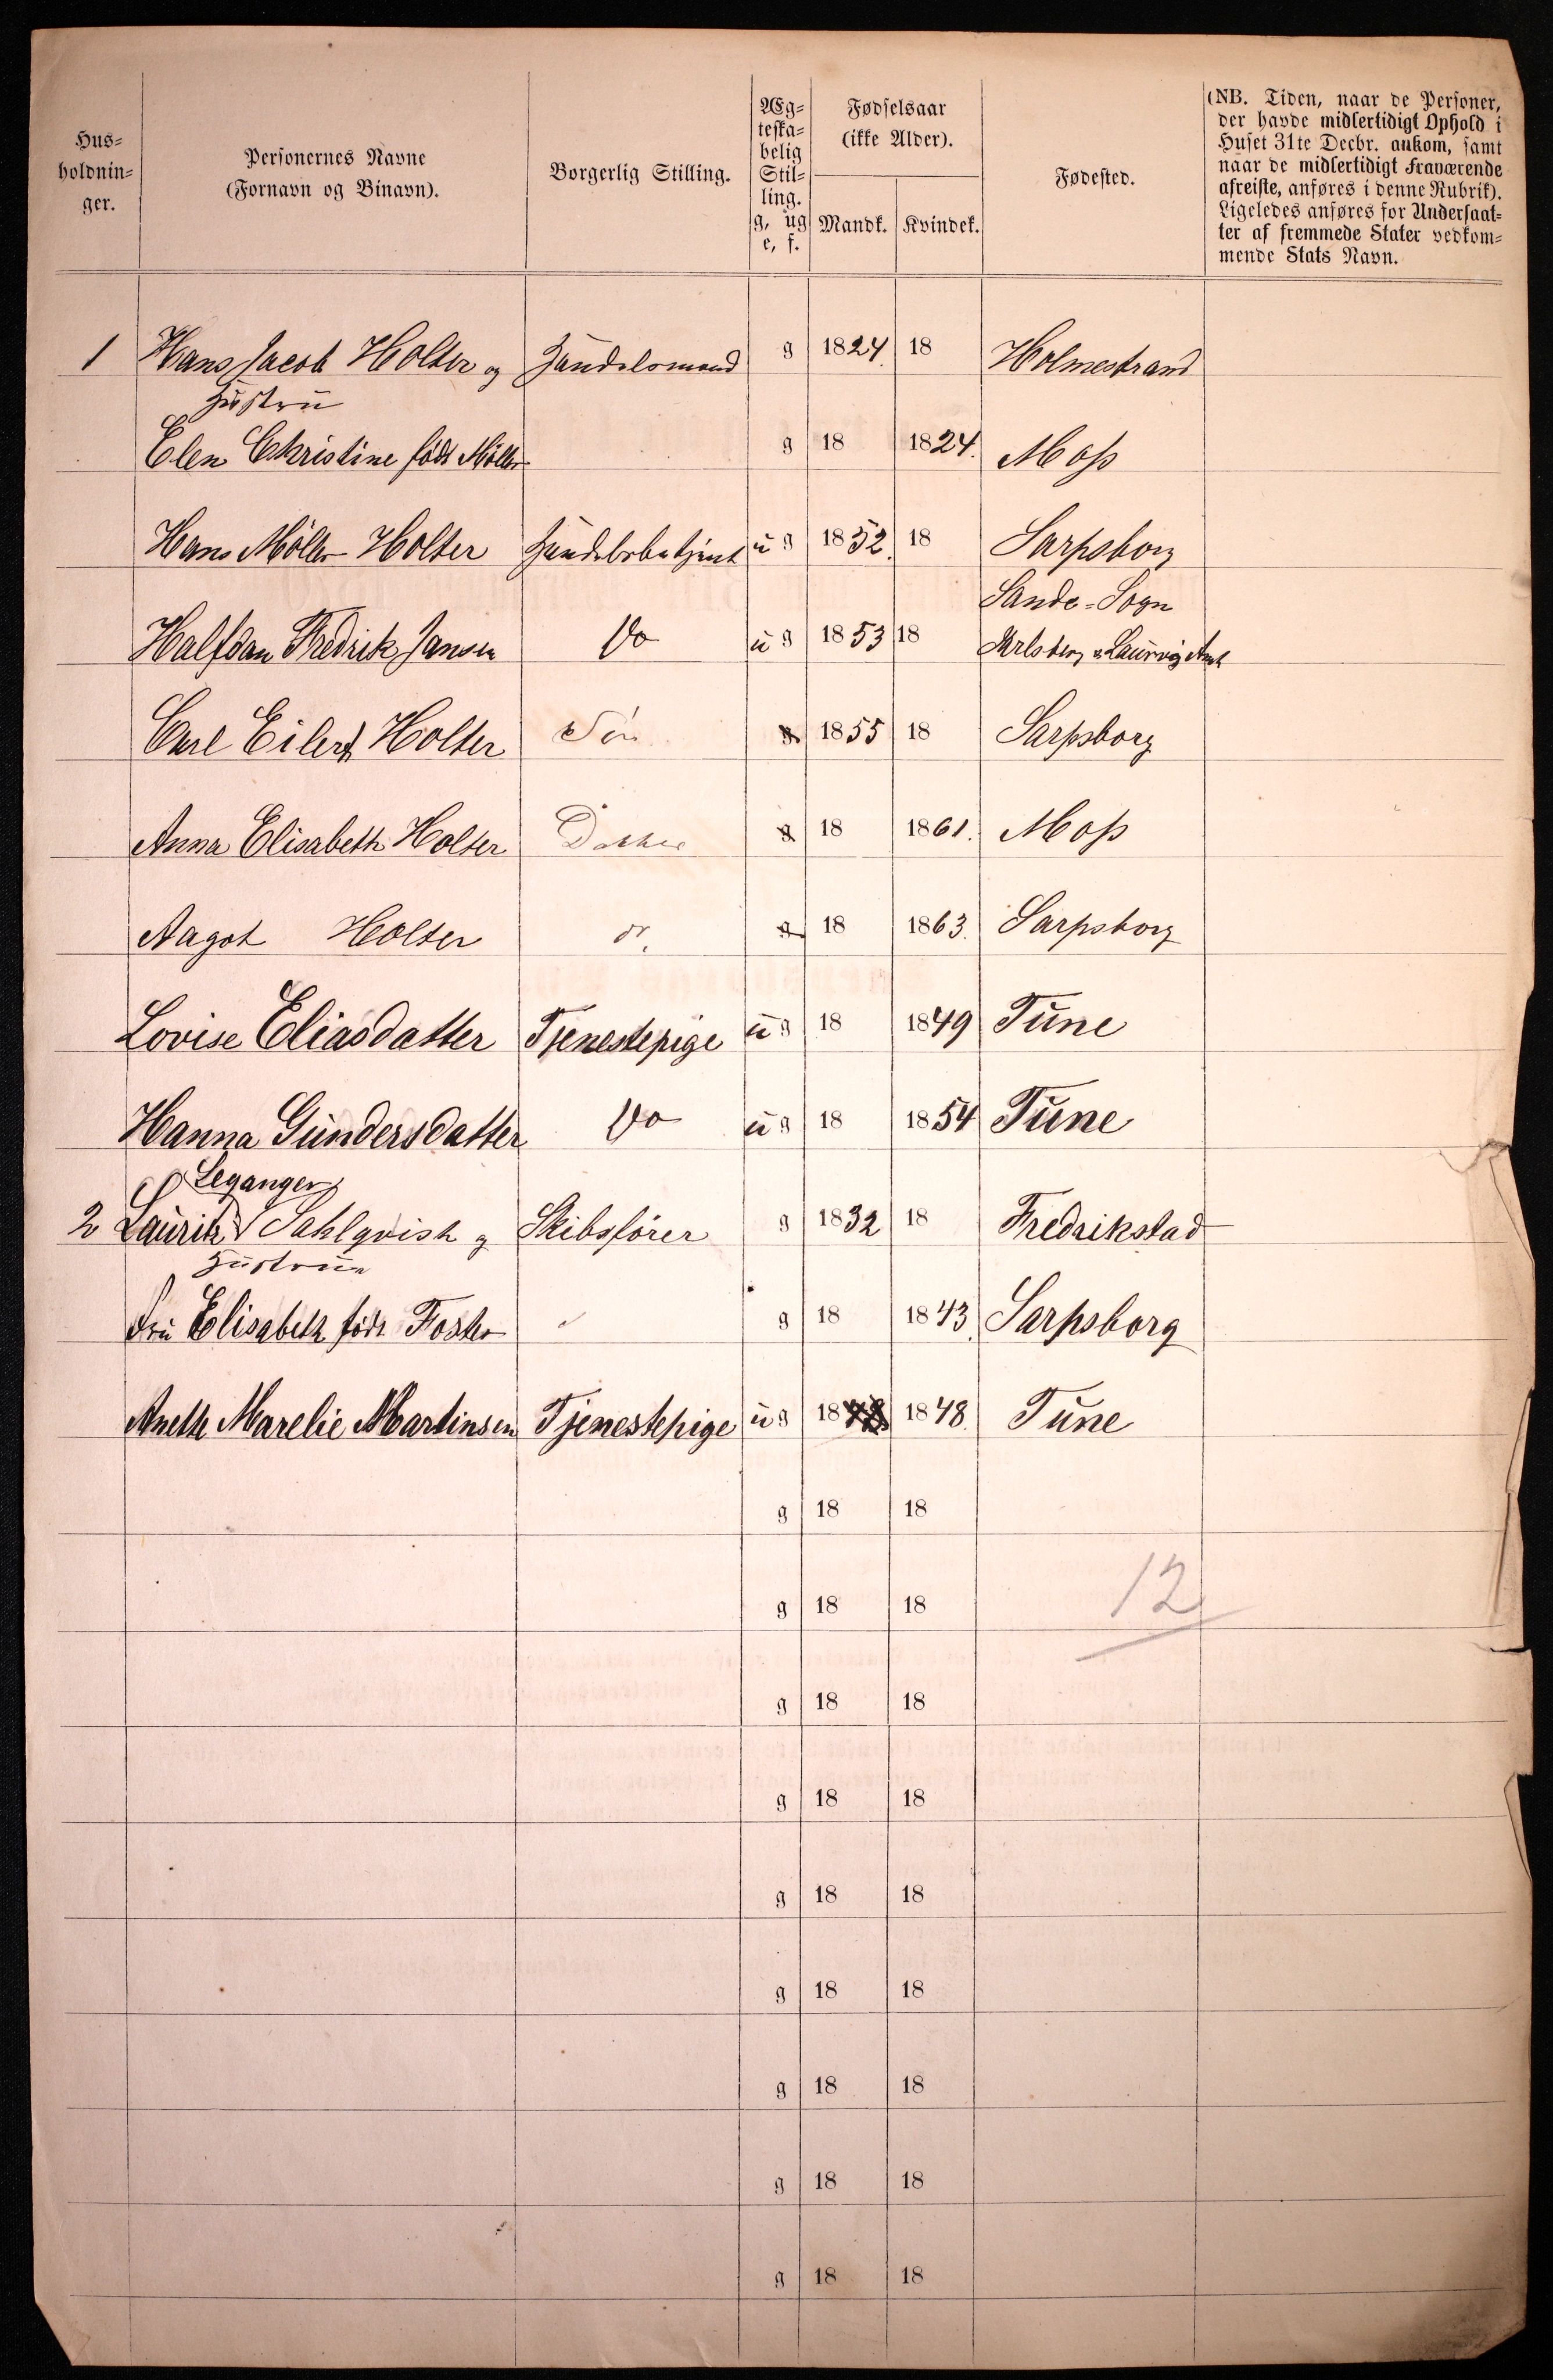 Hus-
holdnin-
ger.
Personernes Navne
(Fornavn og Binavn).
Borgerlig Stilling.
Æg-
teska-
belig
Stil-
ling.
g, ug
e, f.
Fødselsaar
(ikke Alder).
Mandk. Kvindek.
Fødested.
(NB. Tiden, naar de Personer,
der havde midlertidigt Ophold i
Huset 31te Decbr. ankom, samt
naar de midlertidigt fraværende
afreiste, anføres i denne Rubrik).
Ligeledes anføres for Undersaat-
ter af fremmede Stater vedkom-
mende Stats Navn.
1 Hans Jacob Holter og Handelsmand g 1824. 18 Holmestrand
Hustru
Elen Christine født Möller g 18 1824. Moss
Hans Möller Holter Handelsbetjent ug 1852. 18 Sarpsborg
Sande=Sogn
Halfdan Fredrik Jansen Do ug 1853 18 Jarlsberg & Laurvig Amt
Carl Eilert Holter Sön g 1855 18 Sarpsborg
Anna Elisabeth Holter Datter g 18 1861. Moss
Aagot Holter do. g 18 1863. Sarpsborg
Lovise Eliasdatter Tjenestepige ug 18 1849 Tune
Hanna Gundersdatter Do ug 18 1854 Tune
Leganger
2 Lauritz Sahlqvist og Skibsförer g 1832 18 Fredrikstad
Hustru
Fru Elisabeth födt Foster g 18 1843. Sarpsborg
Anette Marelie Martinsen Tjenestepige ug 1848 1848. Tune
g 18 18
g 18 18 12
g 18 18
g 18 18
g 18 18
g 18 18
g 18 18
g 18 18
g 18 18